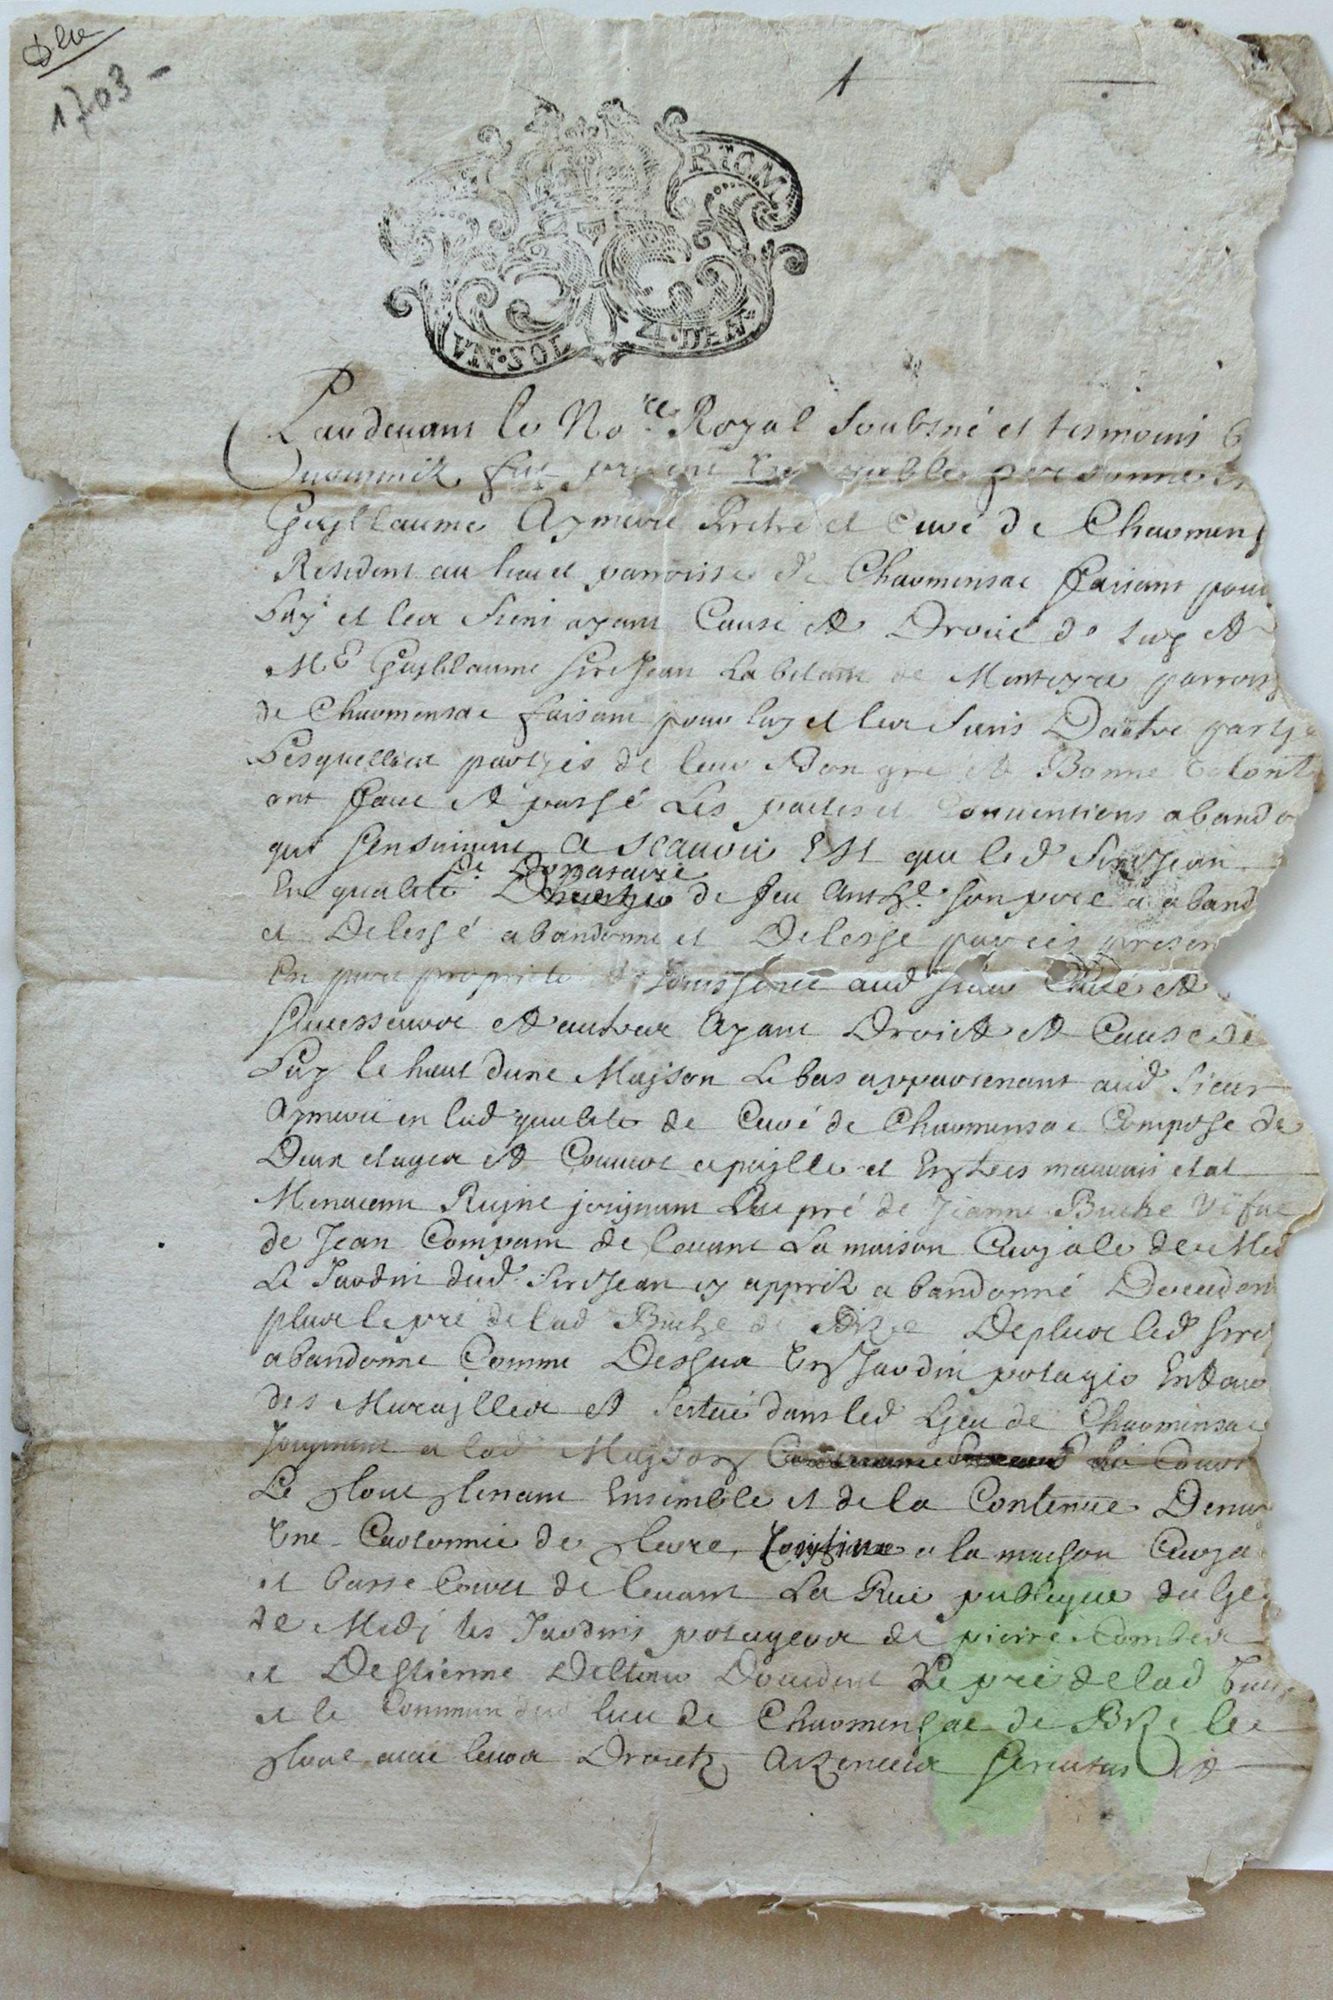 1703 -
1
RIOM
VN·SOL 4·DEN·
Pardevant le No.re Royal soubsné et tesmoins b
fut present personne
Guyllaume Aymeric Prêtre et Curé de Chaumens
Resident au lieu et parroisse de Chaumensac faisant pour
Luy et les siens ayant Cause et Droict de luy et
Me Guyllaume Sirejean habitant de Monteyre parrois
de Chaumensac faisant pour luy et les siens Dautre partye
Lesquelles partyes de leur Bon gre et Bonne Volont
ont faict et passé Les pactes et Conventions abando
qui sensuivent a scauoir Est que led Sirejean
de Donataire
En qualité de feu Anth.e son pere a aband
et Delessé abandonne et Delesse par ces presen
En pure proprieté et Jouissence aud sieur Curé et
successeurs et autres Ayant Droict et Cause de
Luy le haut dune Maison Le bas appartenant aud sieur
Aymeric en lad qualité de Curé de Chaumensac Compose de
Deux etages et Couvert apaille et En tres mauvais etat
Menacant Ruine joignant Le pré de Jeanne Buche Vefue
de Jean Compain de levant La maison Curiale de Mid
Le Jardin dud Sirejean cy apprez abandonné De
plus le pré de lad Buche de Bize De plus led Sire
abandonne Comme Dessus Un Jardin potagé Entour
des Murailles et scitué dans led Lieu de Chaumensac
Joignant a lad Maison
Le tout tenant Ensemble et de la Contenue Denv
Une Cartonnée de terre, a la maison Curia
et basse Cour de levant La Rue publique du lieu
de Midi les Jardins potagers de pierre Combes
et DEstienne Le pré de lad Buch
et le Commun du lieu de Chaumensac de Bize le
tout avec leurs Droictz Servitus et